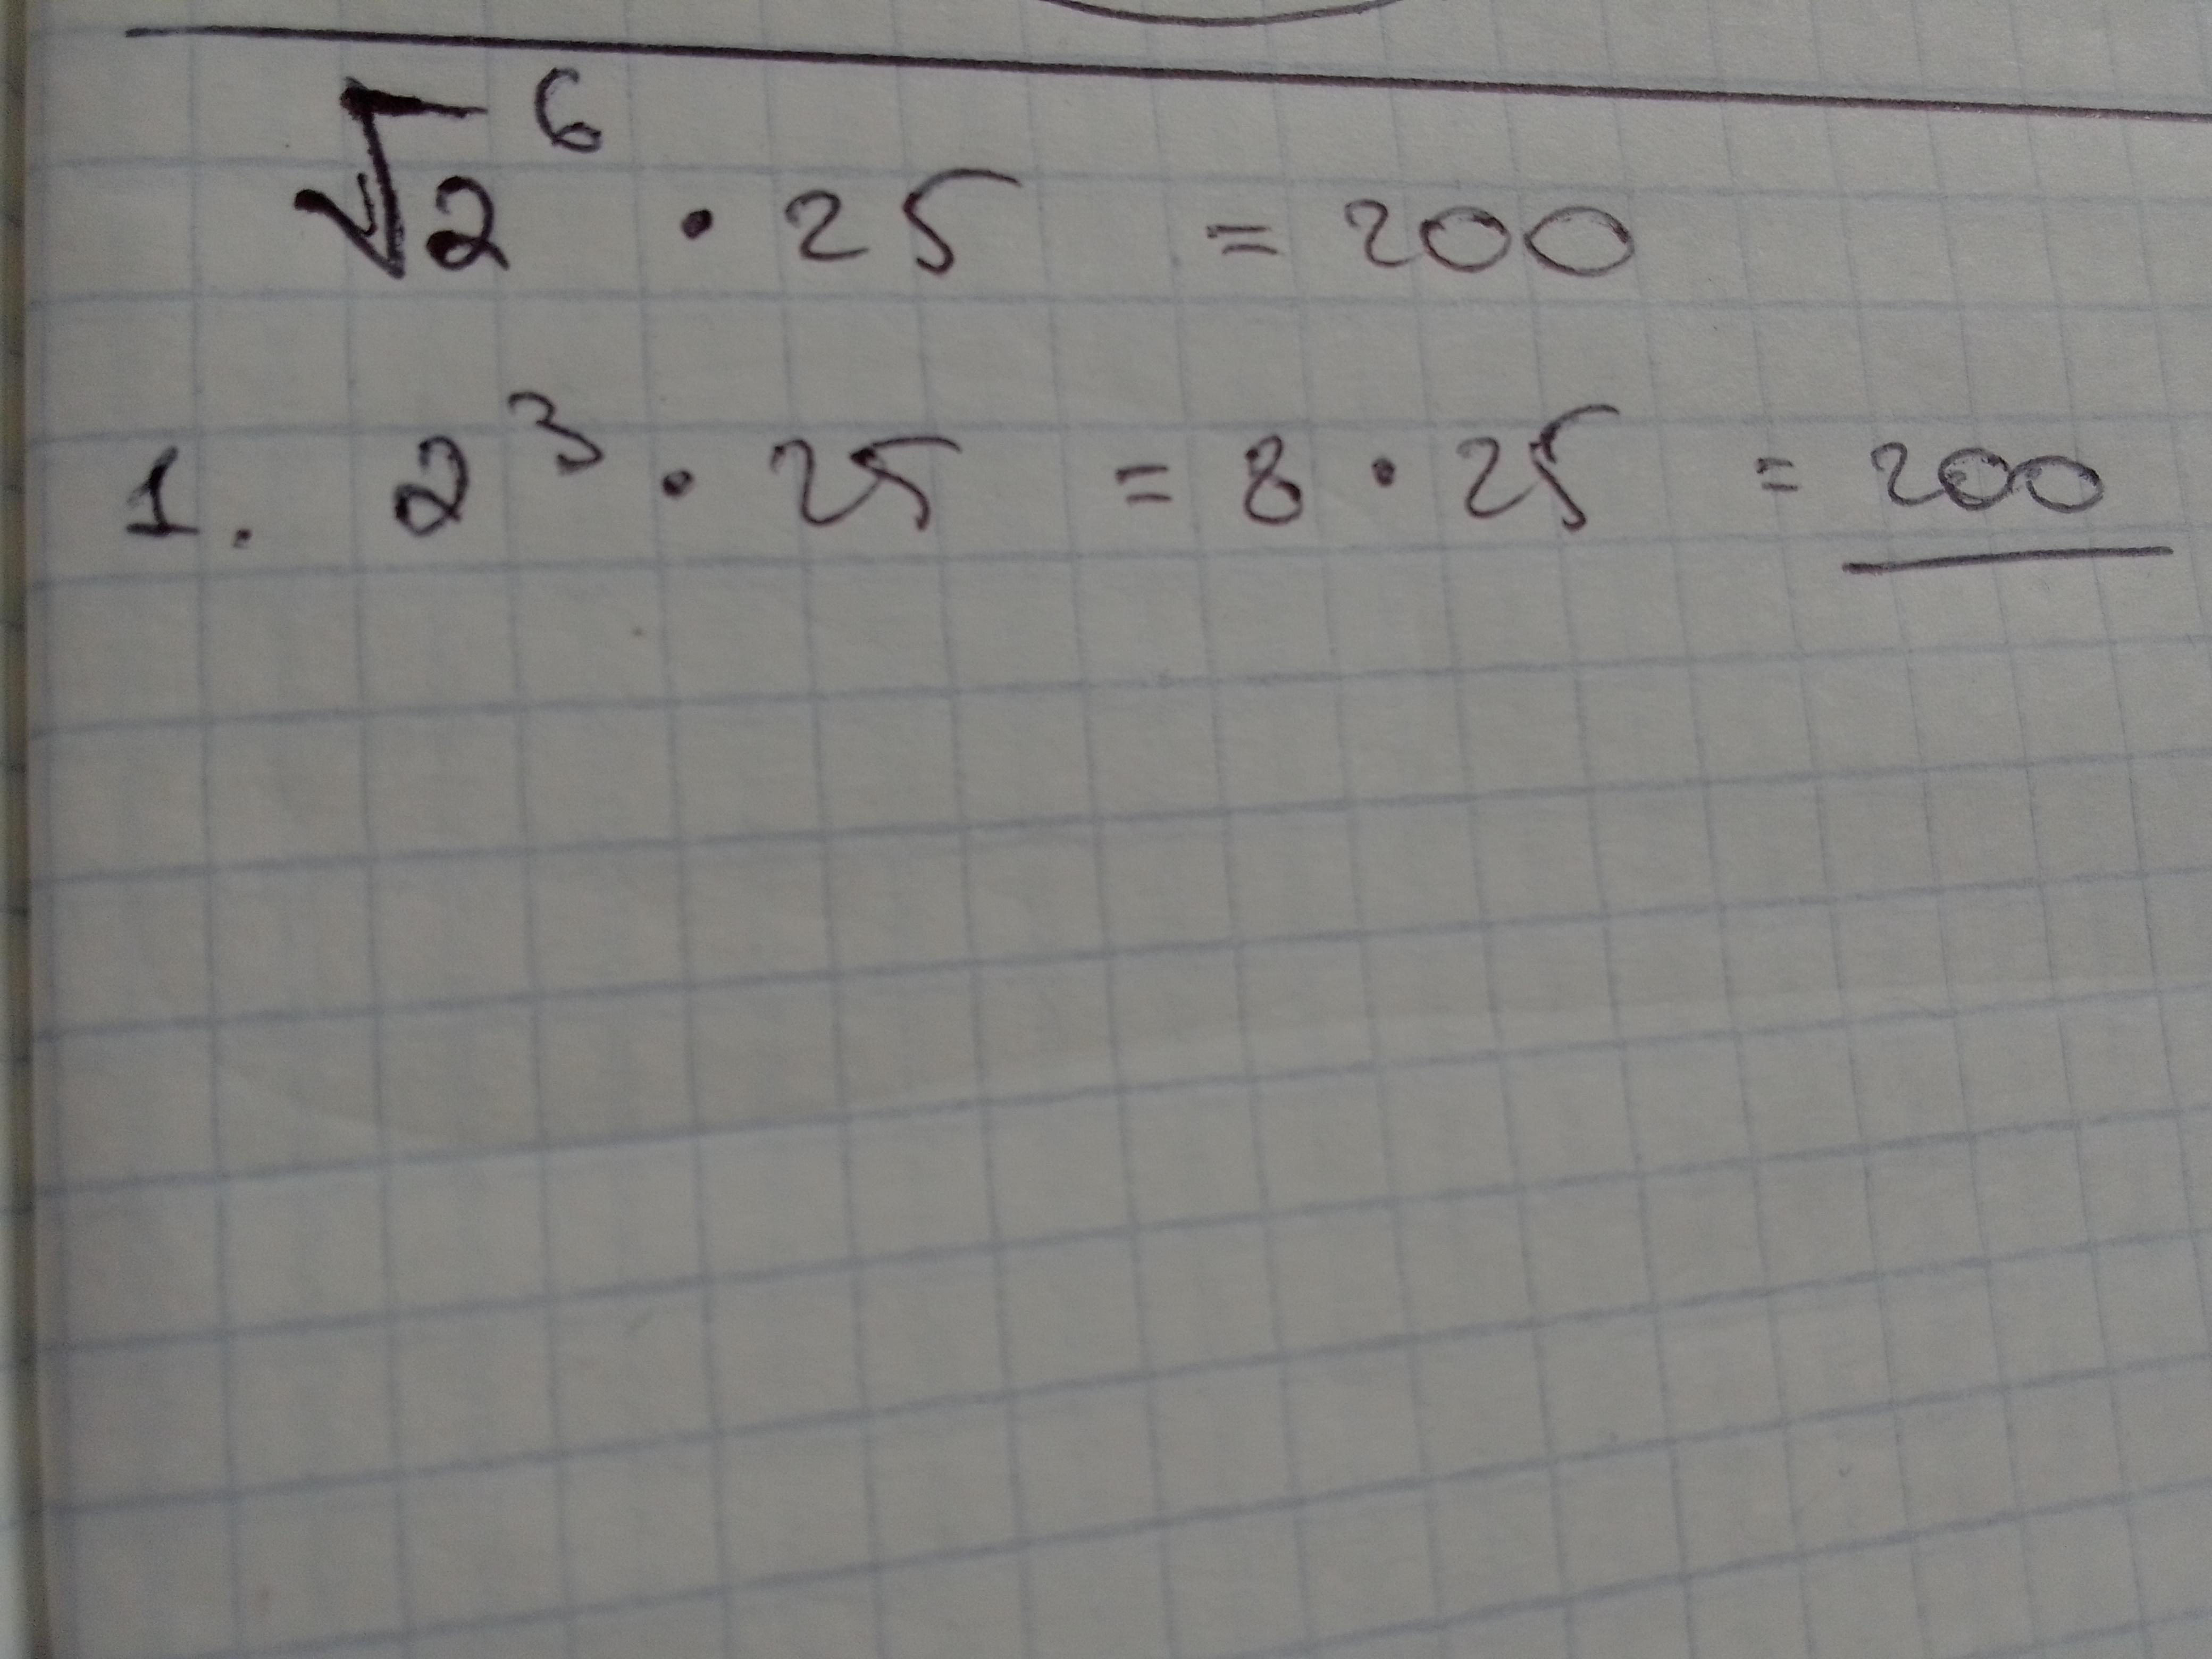 √2⁶ · 25 = 200
1. 2³ · 25 = 8 · 25 = 200